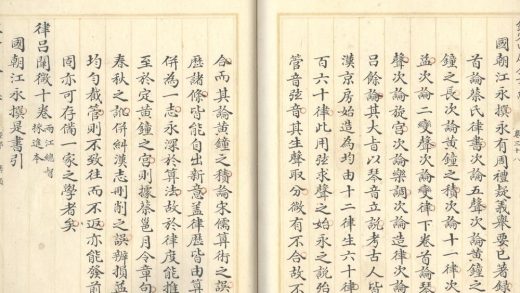 國朝江永撰永有周禮疑義舉要已著錄
首論蔡氏律書次論五聲次論黃鐘之
鐘之長次論黃鐘之積次論十一律次
益次論二變聲次論變律下卷首論琴
聲次論旋宮次論樂調次論造律次
呂餘論其大旨以琴音立說考古人皆
漢京房始造為均由十二律生六十律
百六十律此用弦求聲之始永之說殆
管音弦音其生聲取分微有不合故不
合而其論黃鐘之積論宋儒算術之誤
歷諸條皆能自出新意蓋律歷皆由算
併為一志永深於算法故於律度能推
至於定黃鐘之宮則據蔡邕月令章句
春秋之訛併糾漢志刪削之誤辨損益
均勻截管則不致往而不返亦能發前
固亦可存備一家之學者矣
律呂闡微十卷 兩江總督採進本
國朝江永撰是書引